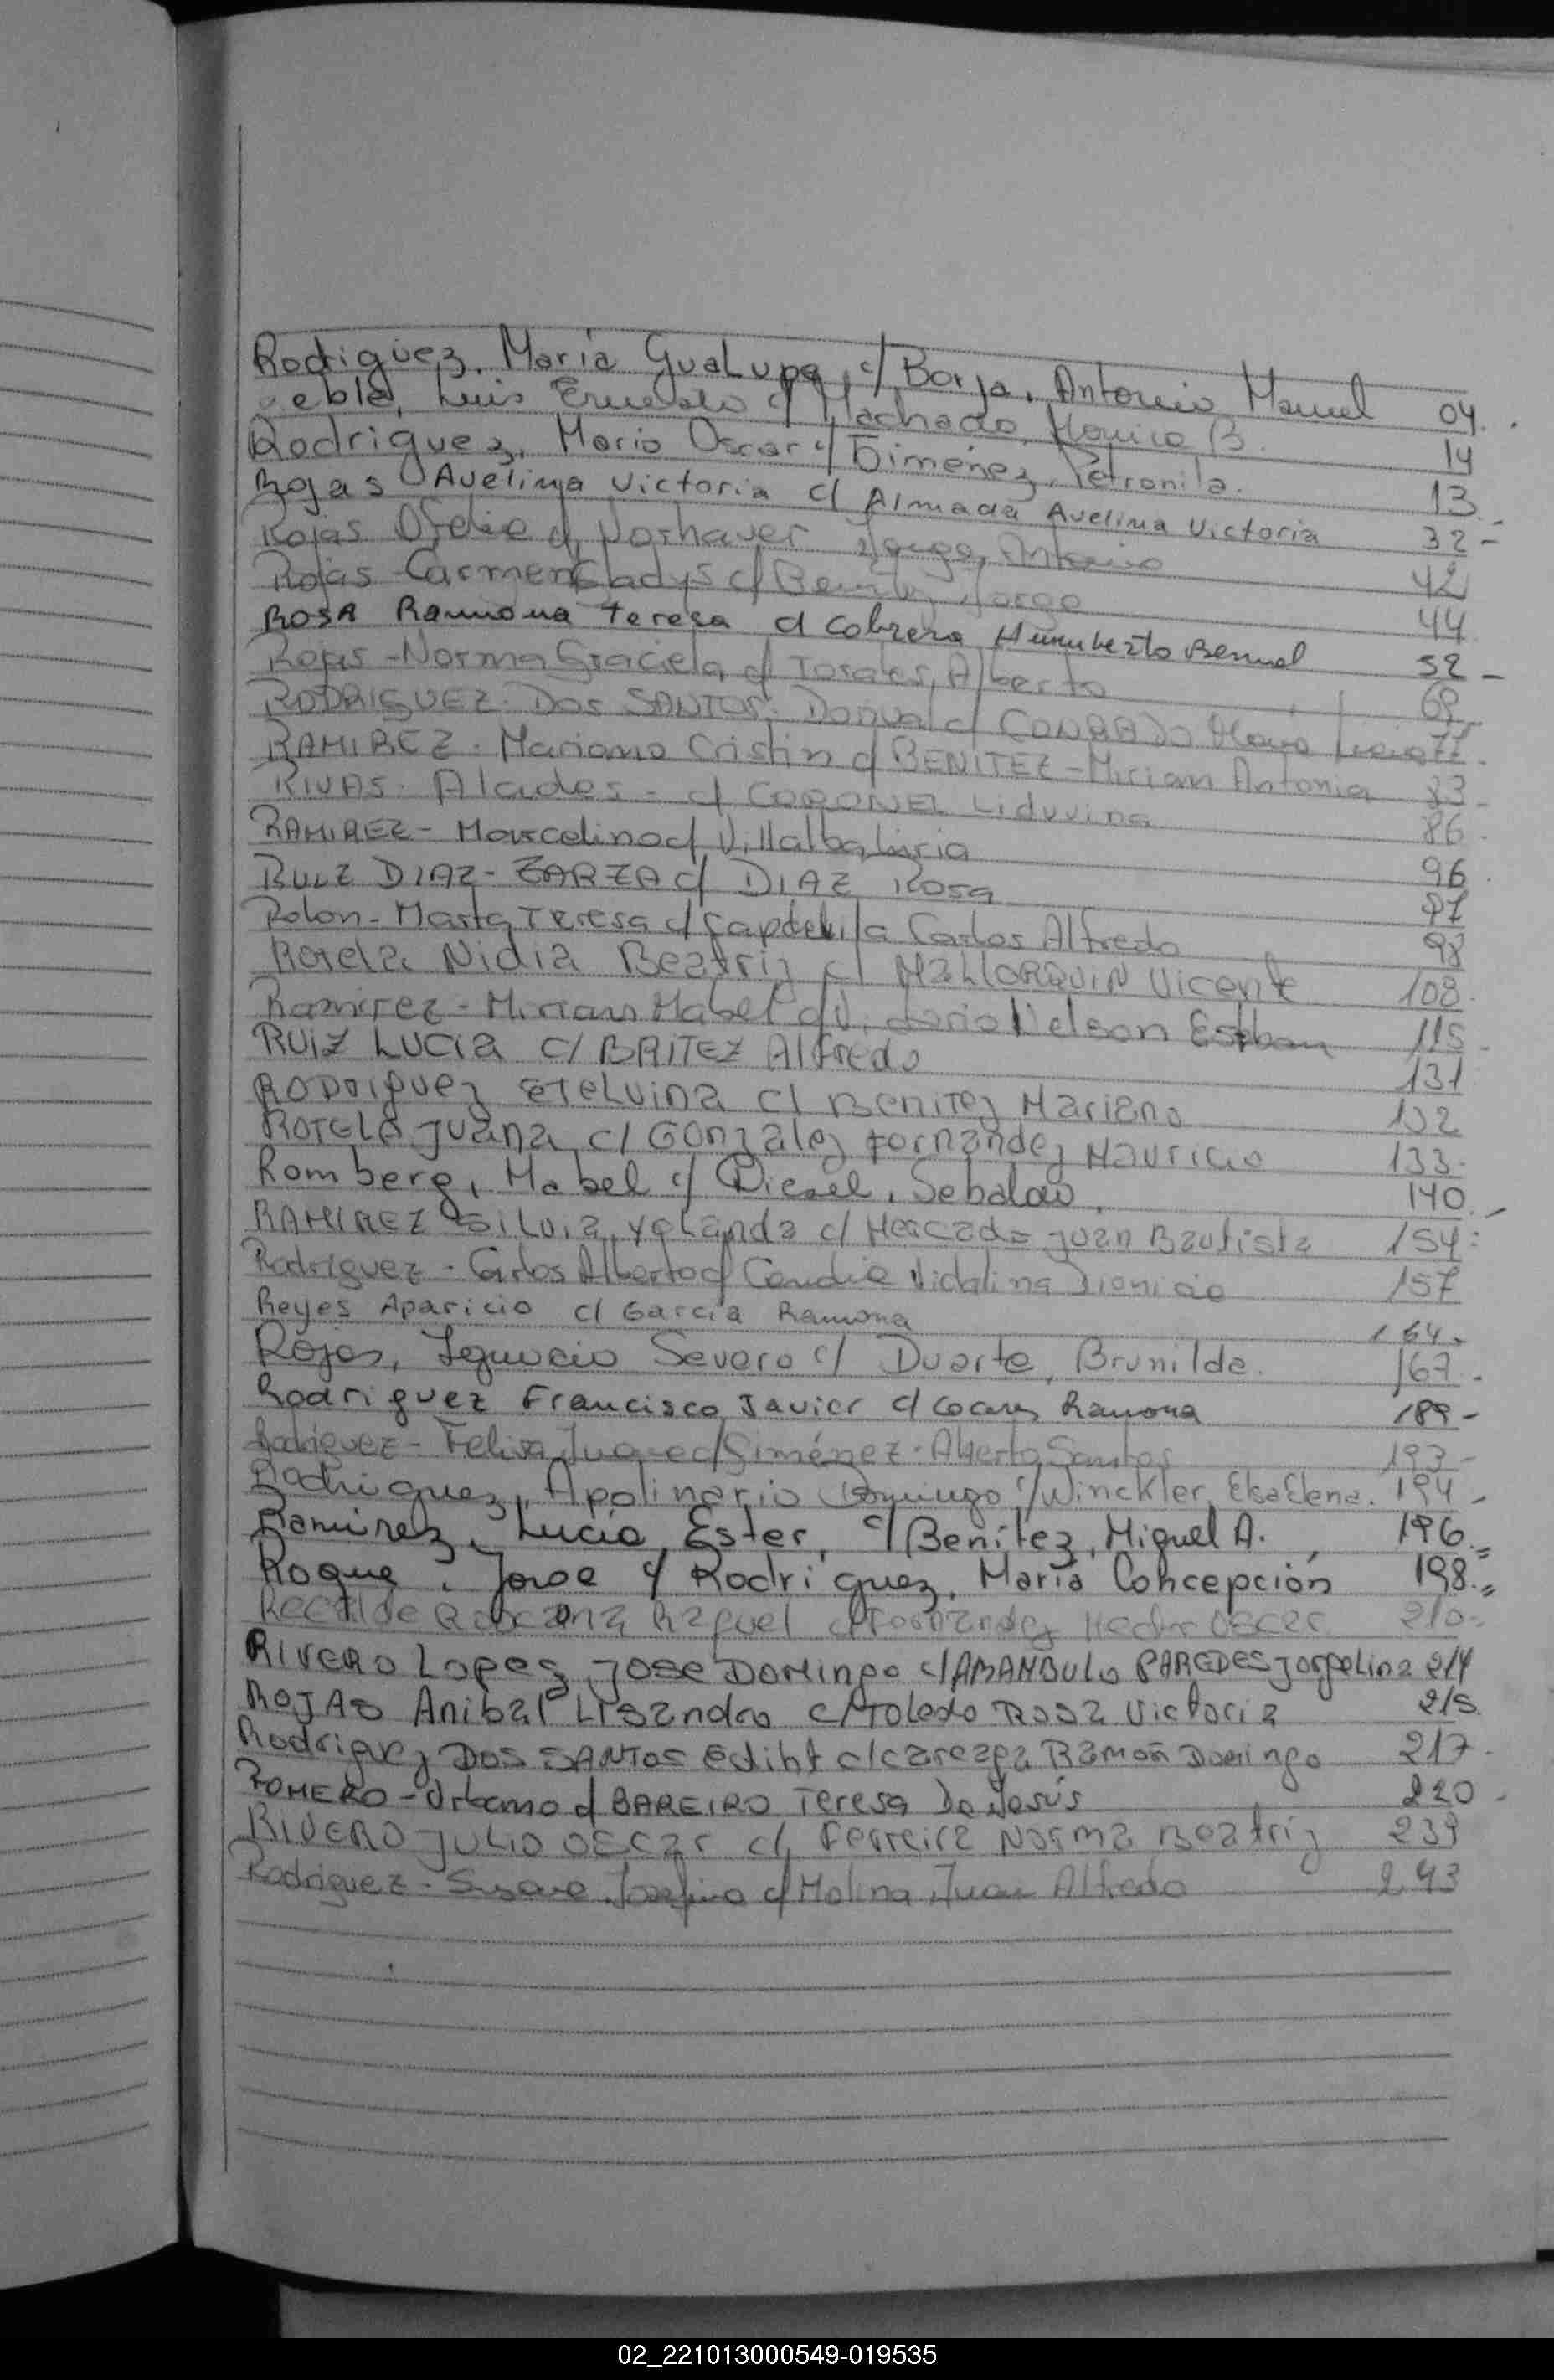 Rodiguez, María Gualupe, c/ Borja, Antonio Manuel 04.
eble, Luis Ernesto c/ Machado, Monica B. 14
Rodriguez, Mario Oscar c/ Gimenez, Petronila. 13
Rojas Avelina Victoria c/ Almada Avelina Victoria 32 -
Rojas Ofelia c/ Jorge, Antonio 42
Rojas Carmen Gladys c/ Benitez Jorge 44
ROSA Ramona Teresa c/ Cabrera Humberto 52 -
Rojas - Norma Graciela c/ Tosales, Alberto 69
RODRIGUEZ. Dos SANTOS. Dorval c/ 77.
RAMIREZ. Mariano Cristin c/ BENITEZ - Mirian Antonia 83 -
RIVAS. Alcides - c/ CORONEL Liduvina 86.
RAMIREZ - Marcelino c/ Villalba, Ligia 96.
RUIZ DIAZ - ZARZA c/ DIAZ Rosa 97
Rolon - Marta Teresa c/ Capdevila Carlos Alfredo 98
Rotela Nidia Beatriz c/ MALLORQUIN Vicente 108.
Ramirez - Miriam Mabel c/ Nelson Esteban 115 -
RUIZ LUCIA c/ BRITEZ Alfredo 131
RODriguez ETELVINA c/ Benitez Mariano 132
ROTELA Juana c/ Gonzalez Fernandez Mauricio 133.
Romberg, Mabel c/ Diesel, Sebaldo, 140. -
RAMIREZ SILVIA Yolanda c/ Mercado Juan Bautista 154:
Rodriguez - Carlos Alberto c/ Candia Vidalina Dionicia 157
Reyes Aparicio c/ Garcia Ramona 164.
Rojas, Ignacio Severo c/ Duarte, Brunilda. 167.
Rodriguez Francisco Javier c/ Ramona 189 -
Rodriguez - Juana c/ Giménez - Alberto Santos 193 -
Rodriguez, Apolinario Domingo c/ Winckler, Elsa Elena. 194 -
Ramirez, Lucía Ester, c/ Benítez, Miguel A. 196.=
Roque, Jorge c/ Rodriguez, María Concepción 198.=
Recalde Raquel c/ Fernandez Hector OSCAR 210.
RIVERO Lopez, JOSE DOMingo c/ AMANBULO PAREDES Jorgelina 214
ROJAS Anibal Lisandro c/ Toledo ROSA Victoria 215.
Rodriguez DOS SANTOS c/ Ramón Domingo 217.
ROMERO - Urbano c/ BAREIRO Teresa De Jesús 220 -
RIVERO JULIO OSCAR c/ Ferreira Norma Beatriz 239
Rodriguez - Susana Josefina c/ Molina Juan Alfredo 243
02_221013000549-019535